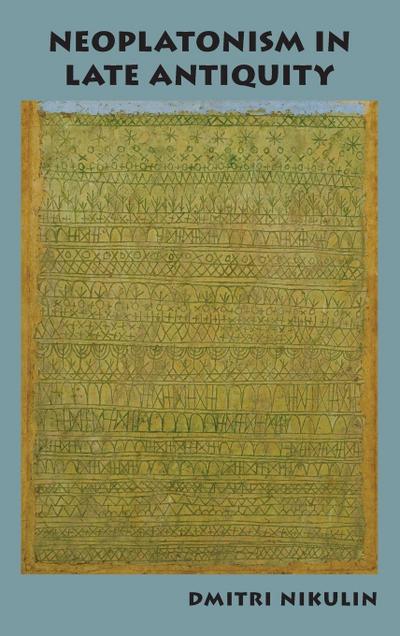 NEOPLATONISM IN
LATE ANTIQUITY
DMITRI NIKULIN